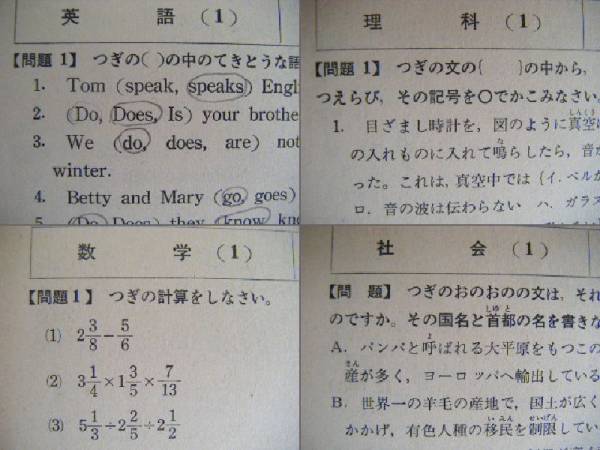 英 語 (1)
【問題 1】 つぎの( )の中のてきとうな語
1. Tom (speak, speaks) Engl
2. (Do, Does, Is) your brothe
3. We (do, does, are) not
winter.
4. Betty and Mary (go, goes)
5. (Do, Does) they (know, kno
理 科 (1)
【問題 1】 つぎの文の{ }の中から,
つえらび, その記号を○でかこみなさい。
1. 目ざまし時計を, 図のように真空
の入れものに入れて鳴らしたら, 音が
った。これは, 真空中では {イ. ベルか
ロ. 音の波は伝わらない ハ. ガラス
数 学 (1)
【問題 1】 つぎの計算をしなさい。
(1) 2 3/8 − 5/6
(2) 3 1/4 × 1 3/5 × 7/13
(3) 5 1/3 ÷ 2 2/5 ÷ 2 1/2
社 会 (1)
【問 題】 つぎのおのおのの文は, それ
のですか。その国名と首都の名を書きな
A. パンパと呼ばれる大平原をもつこの
産が多く, ヨーロッパへ輸出している
B. 世界一の羊毛の産地で, 国土が広く
かかげ, 有色人種の移民を制限してい